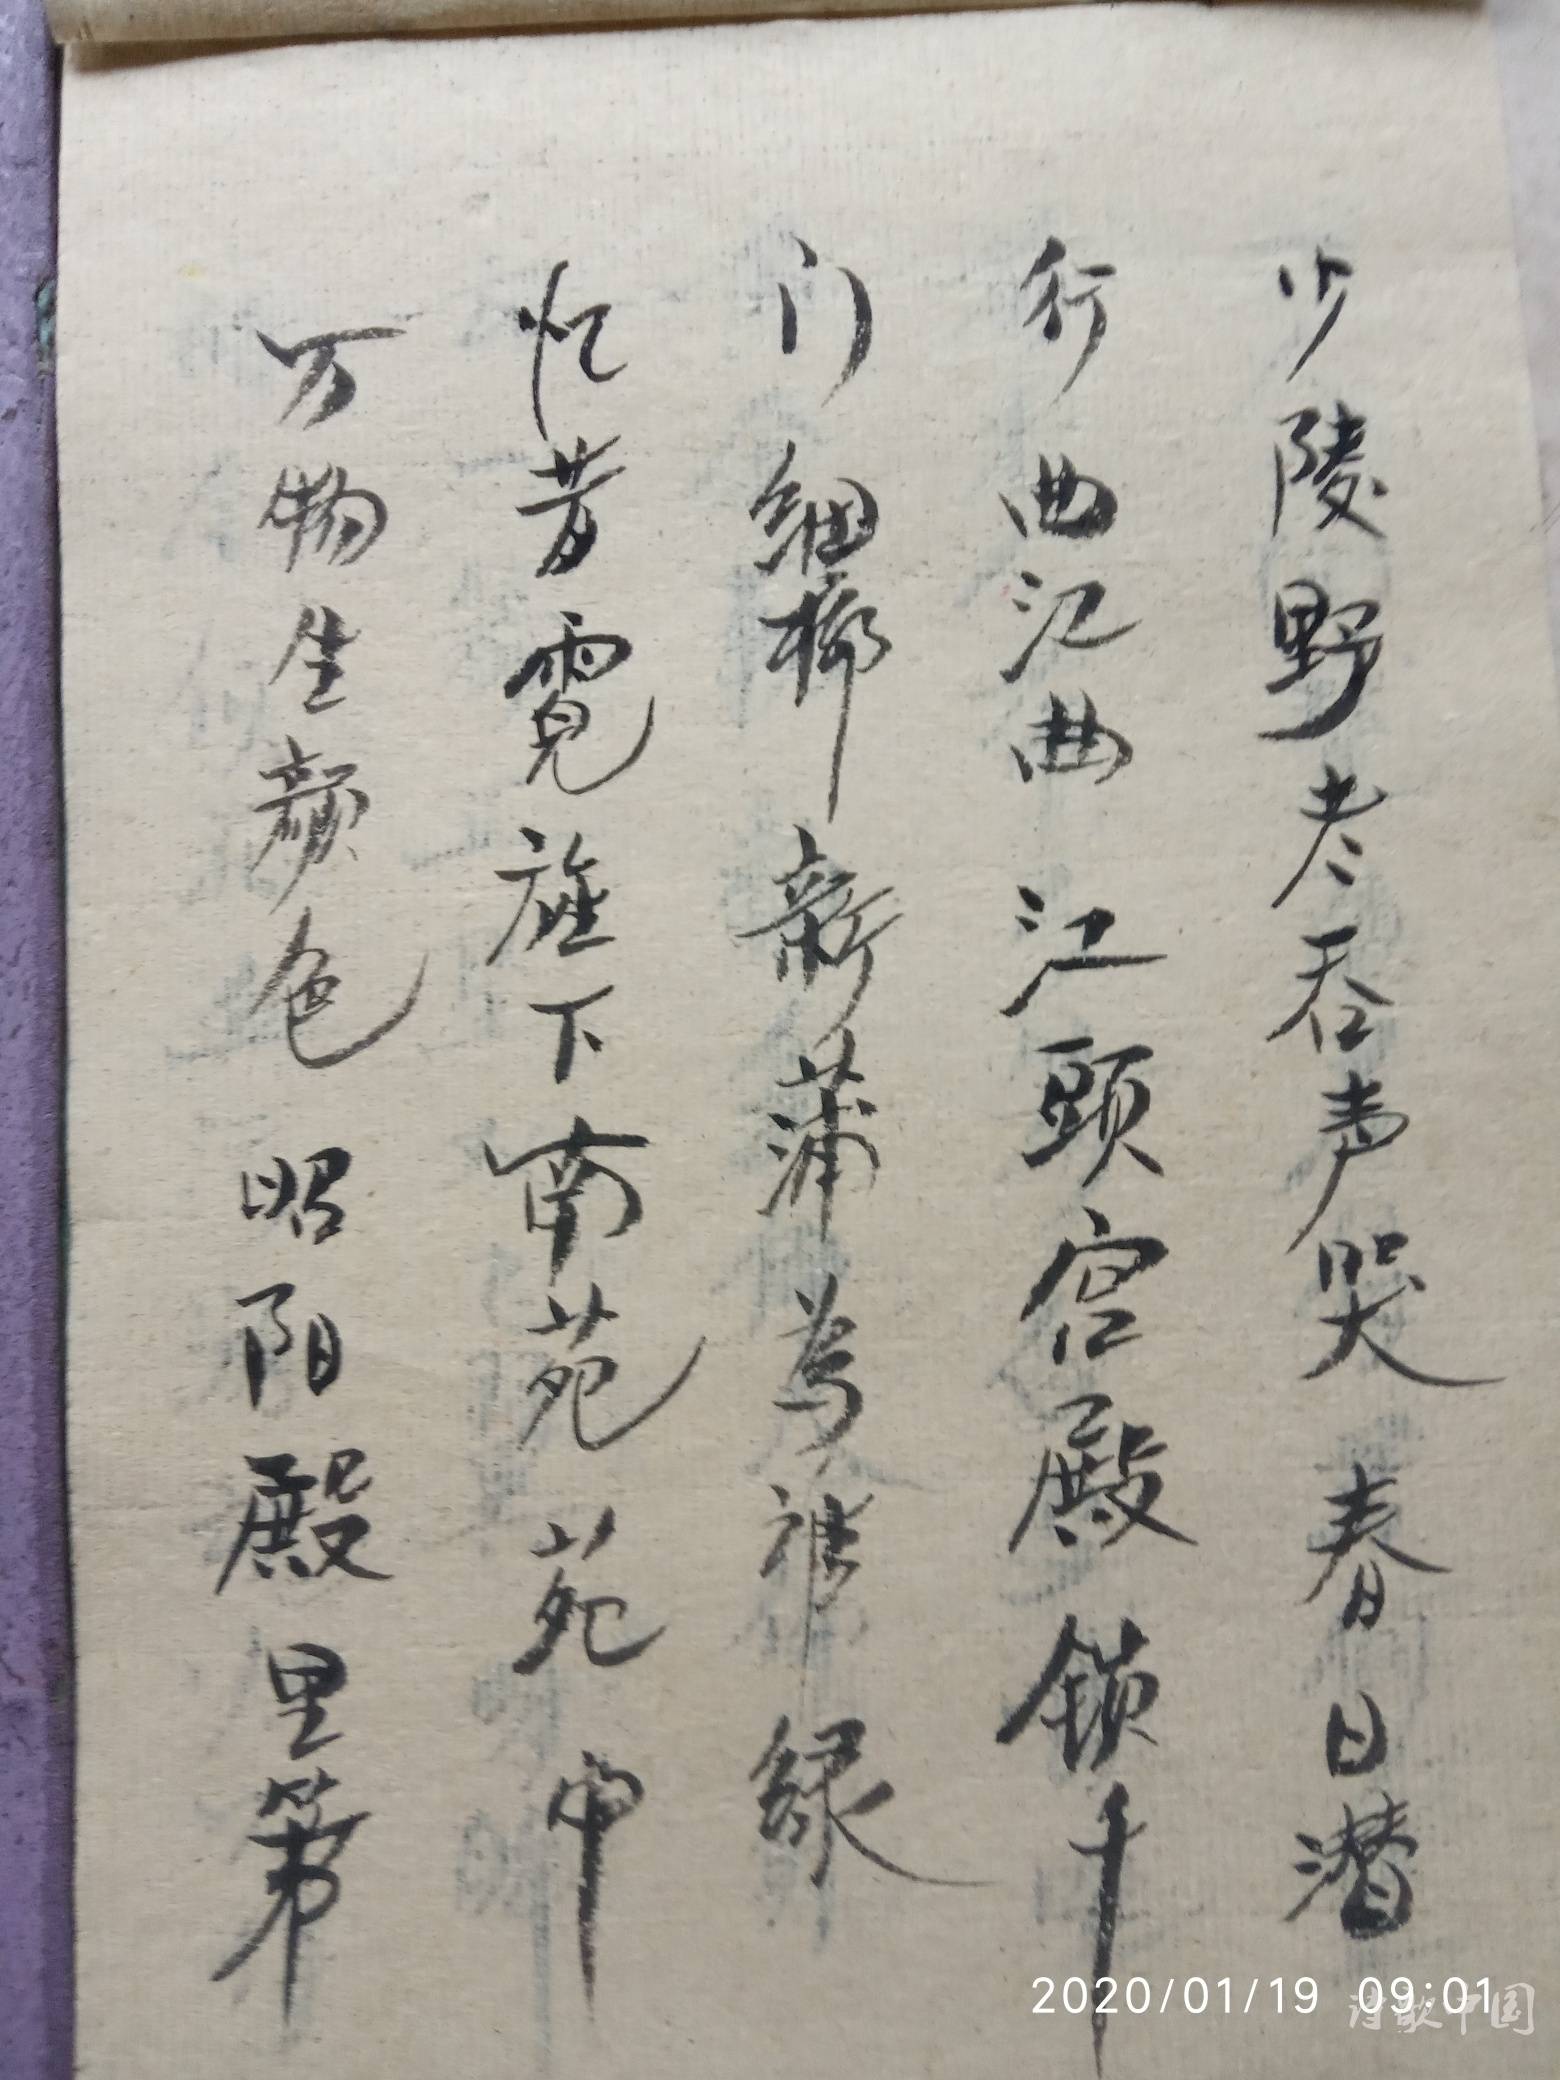 少陵野老吞声哭春日潜
行曲江曲江頭宫殿锁千
门細柳新蒲為谁绿
忆昔霓旌下南苑苑中
万物生颜色昭阳殿里第
2020/01/19 09:01
诗歌中国